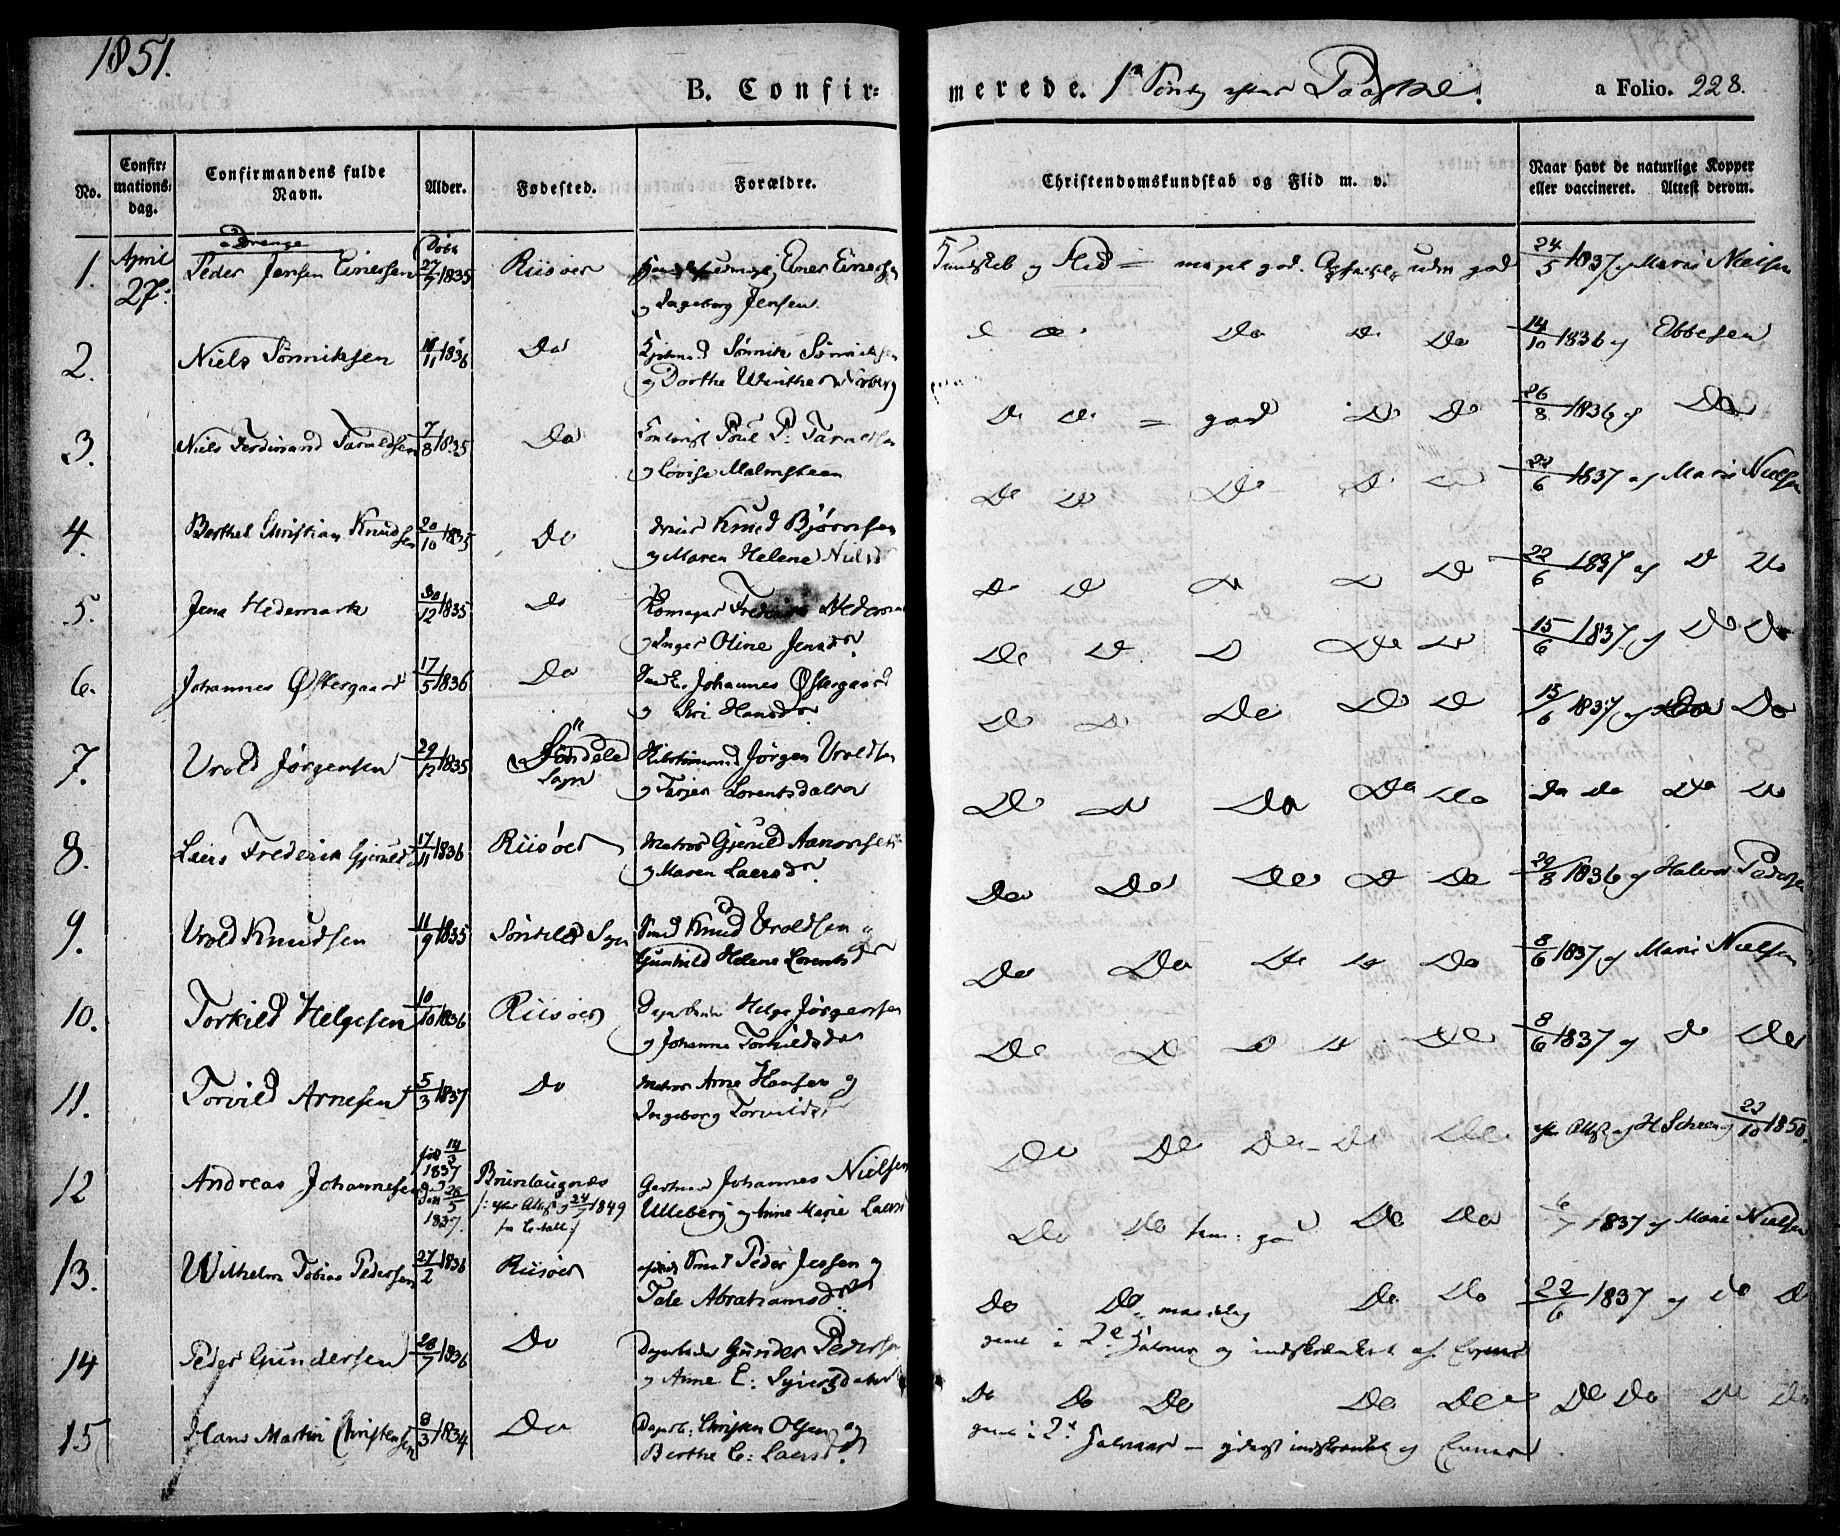 1851.
B. Confir=
merede. 1ste Sönd. efter Paaske.
a Folio. 228.
No.
Confir=
mations=
dag.
Confirmandens fulde
Navn.
Alder.
Fødested.
Forældre.
Christendomskundskab og Flid m. v.
Naar havt de naturlige Kopper
eller vaccineret. Attest derom.
Drenge
Døbt
1. April 27. Peder Jensen Einersen 27/7 1835 Riisöer Einer Einersen
og Ingeborg Jensen.
Kundskab og Flid = meget god. Opførsel udm god 24/5 1837 af Marie Nielsen
2. Niels Sönniksen 11 1836 Do Sönnik Sönniksen
og Dorthe Winther
Do Do Do 14/10 1836 af Ebbesen
3. Niels Ferdinand Taraldsen 7/8 1835 Do Poul P. Taraldsen
og Lovise Malmsteen
Do Do = god Do Do 26/8 1836 af Do
4. Berthel Christian Knudsen 20/10 1835 Do Knud Björnsen
og Maren Helene Nielsd
Do Do Do Do 22/6 1837 af Marie Nielsen
5. Jens Hedemark 30/12 1835 Do Frederik Hedemark
og Inger Oline Jensdr
Do Do Do Do Do 22/6 1837 af D Do
6. Johannes Østergaard 17/5 1836 Do Johannes Østergaard
og Siri Hansdr
Do D. D Do Do 15/6 1837 af Do Do
7. Urold Jørgensen 29/12 1835 Söndeled
Sogn Jörgen Uroldsen
og Tarjer Lorentsdatter
Do D Do Do Do 15/6 1837 af Do
8. Laers Frederik Gjeruldsen 17/11 1836 Riisöer Matros Gjeruld Aanonsen
og Maren Laersdr
Do Do Do Do Do Do Do Do Do
9. Urold Knudsen 11/9 1835 Söndeled Sogn Knud Uroldsen og
Gunhild Helene Lorentsdr
Do Do Do D Do 29/8 1836 af Halvor Pedersen
10. Torkild Helgesen 10/10 1836 Riisöer Helge Jörgensen
og Johanne Torkildsdr
Do Do Do Do Do 8/6 1837 af Marie Nielsen
11. Torvild Arnesen 5/3 1837 Do Matros Arne Hansen og
Ingeborg Torvildsd
Do Do D D Do 8/6 1837 af D Do
12 Andreas Johannesen fød 14/3
1837
Døbt 28/5
1837. Brunlaugnæs
/: efter Attest 24/7 1849
Gartner Johannes Nielsen
Ulleberg og Anne Marie Laersd
Do Do Do Do Do efter Attest af H Scheen 23/10 1850.
13. Wilhelm Tobias Pedersen 27/2 1836 Riisöer Peder Jessen og
Tale Abrahamsdr
Do Do tem: god Do Do 6/7 1837 af Marie Nielsen
14 Peder Gundersen 28/7 1836 Do Gunder Pedersen
og Anne E: Sjversdatter
Do Do maadelig Do Do 22/6 1837 af Do D
gaaet i 2de Halvaar og indskrænket af Evner
15 Hans Martin Christensen 8/3 1834 Do Christen Olsen og
Berthe E: Laersd.
Do Do Do Do Do Do Do Do Do
gaaet i 2de Halvaar – yderst indskrænket af Evner